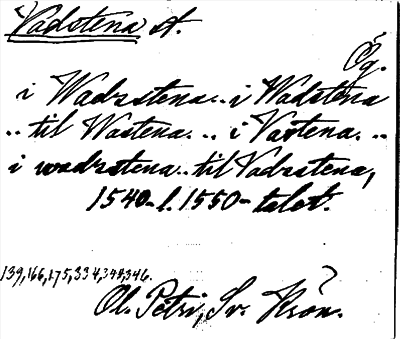 Vadstena st.
Ög.
i Wadzstena .. i Wadstena
.. til Wastena .. i Vastena ..
i wadzstena .. til Vadzstena,
1540- l. 1550-talet.
139, 166, 175, 334, 344, 346.
Ol. Petri, Sv. Krön.